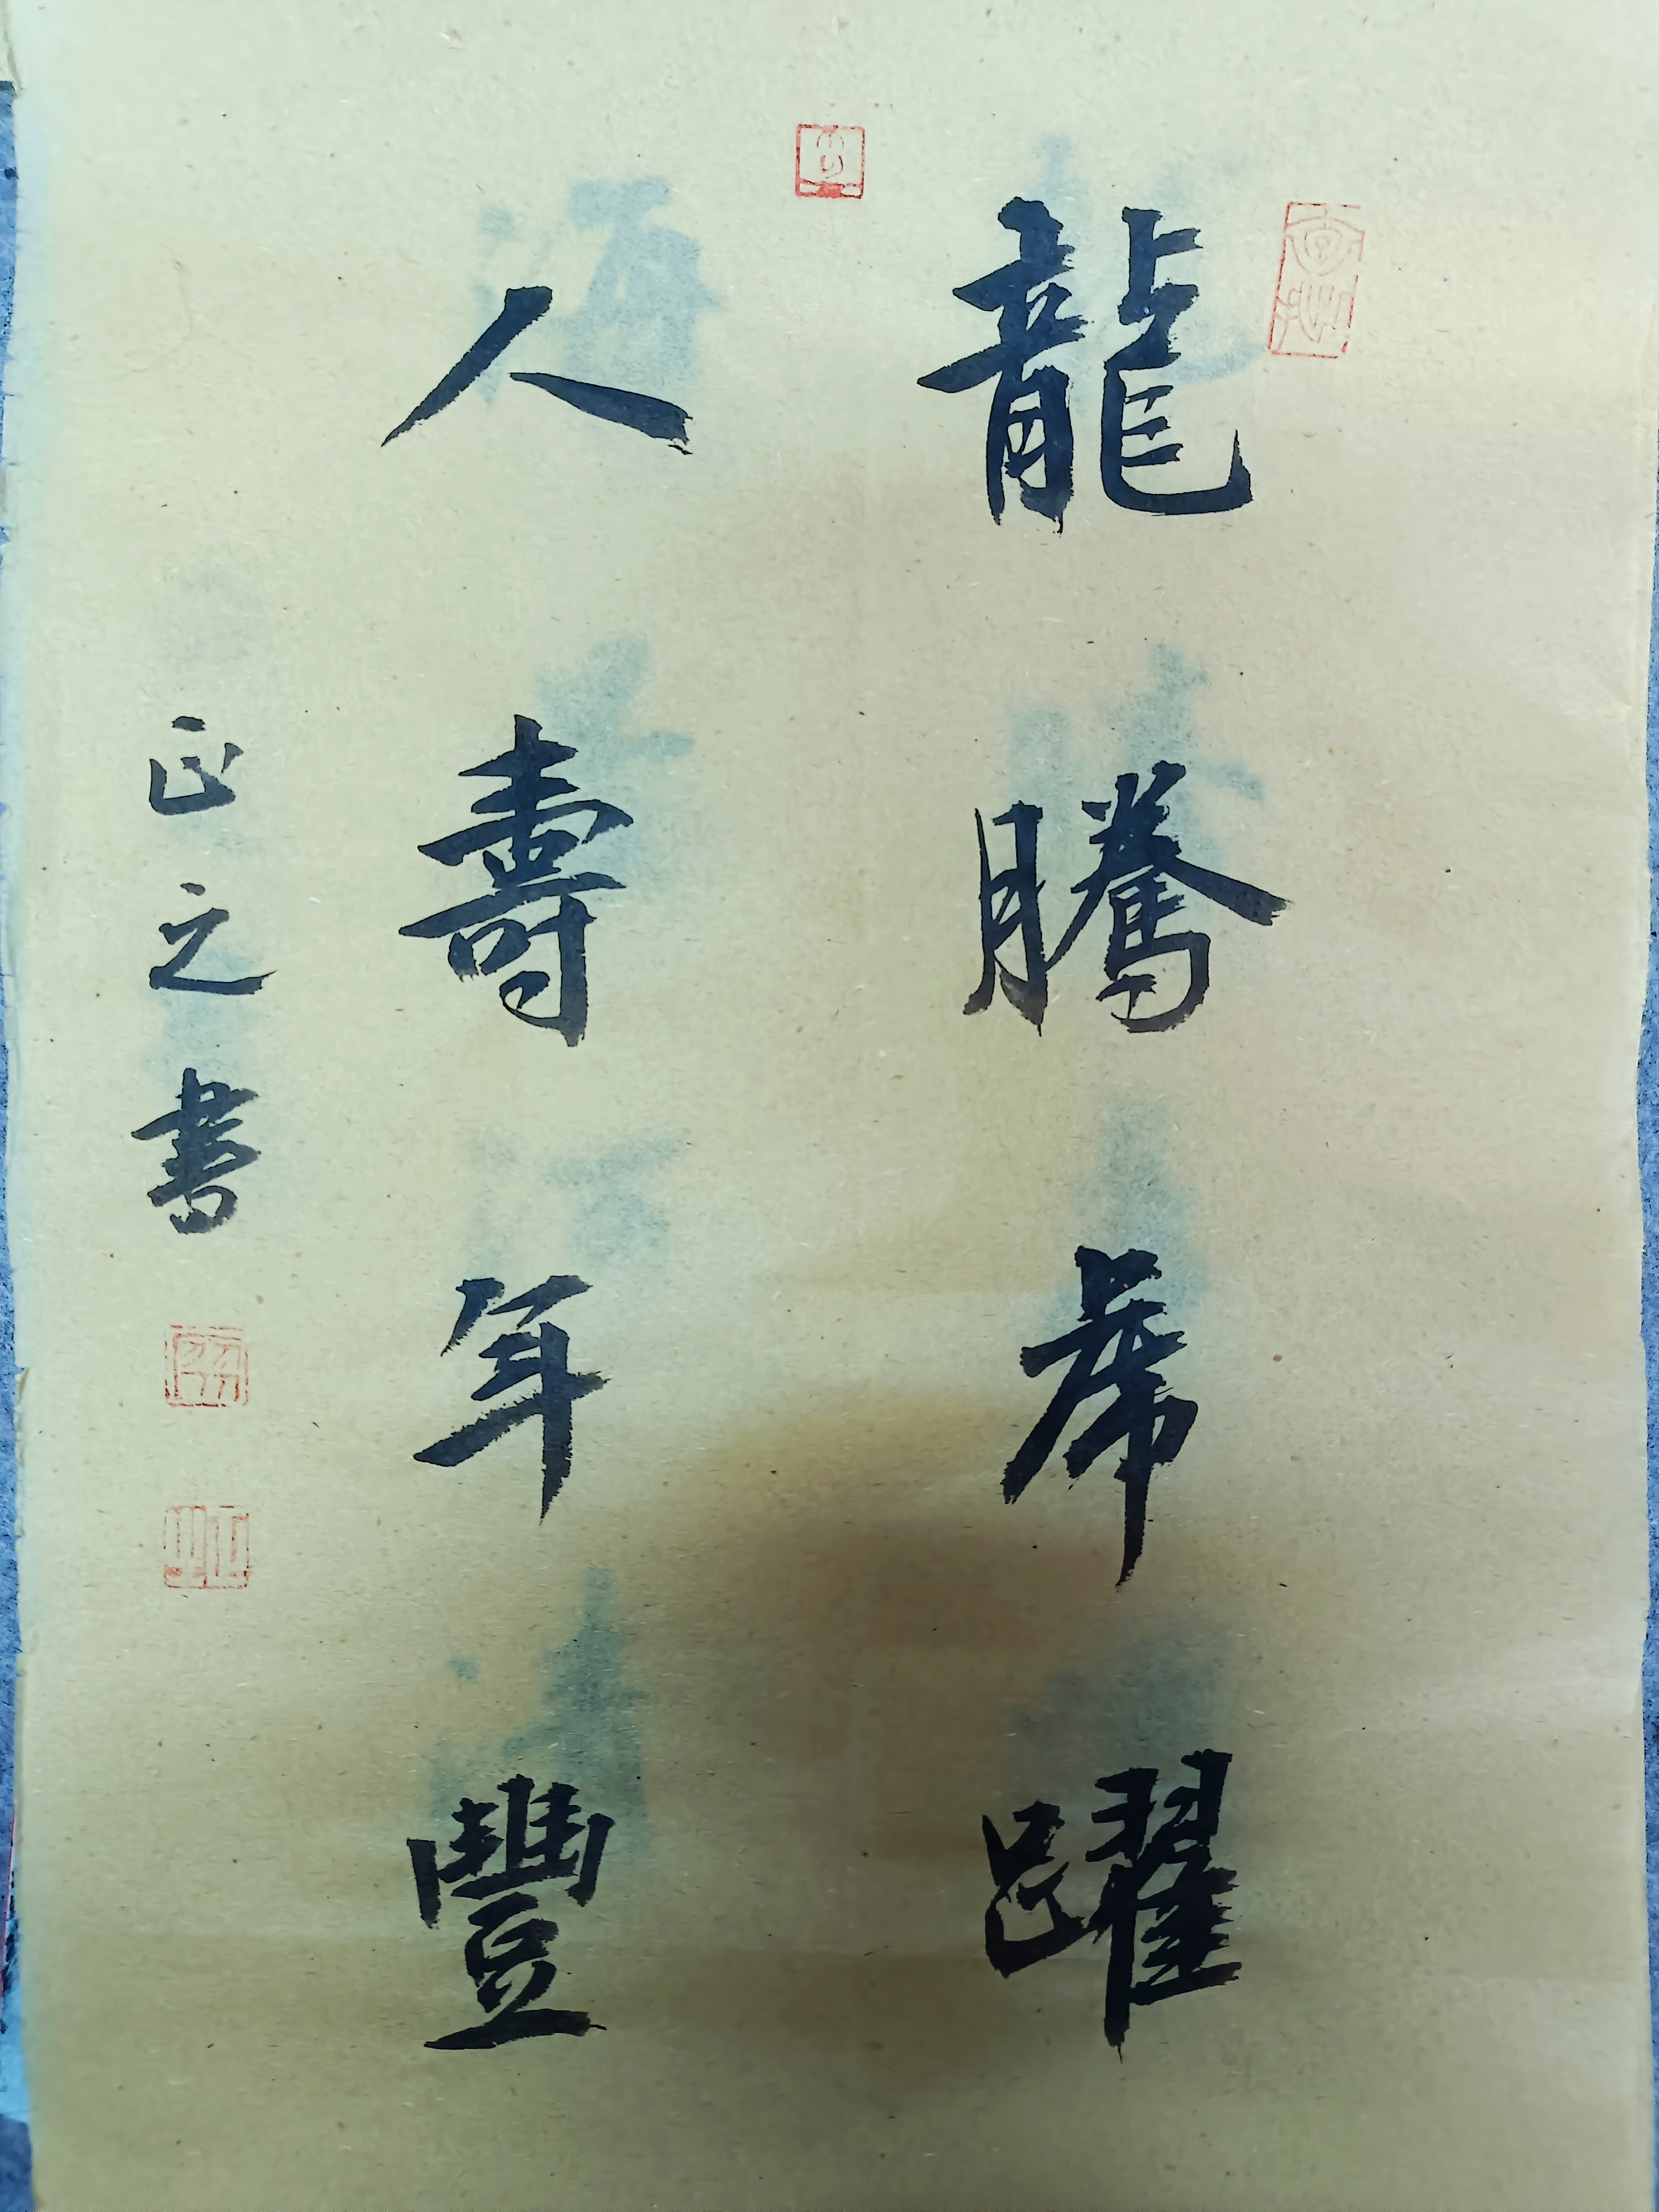 龍騰虎躍
人壽年豐
正之書